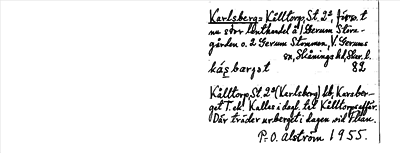 Karlsberg = Källtorp, St. 2ª, förr. t
nu störr lanthandel å l Gerum Storm-
gården o. 2 Gerum Stommen, V. Gerums
sn, Skånings hd, Skar. l.
kás̱bærgət 82
Källtorp, St. 2ª (Karlsberg) äb, Karsber-
get T. ä. Kallas i dagl. tal Källtorpsaffär.
Där träder urberget i dagen vid Flian.
P.O. Alström 1955.